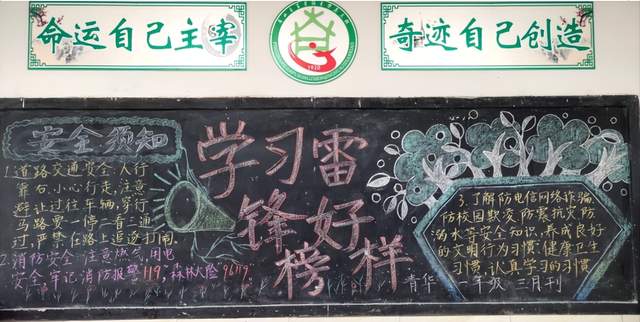 命运自己主宰
奇迹自己创造
1920
安全须知
1.道路交通安全:人行
靠右,小心行走,注意
避让过往车辆,穿行
马路要一停二看三通
过,严禁在路上追逐打闹
2.消防安全:注意燃气、用电
安全,牢记消防报警119;森林火险96119
学习雷
锋好
榜样
3.了解防电信网络诈骗
防校园欺凌、防震抗灾、防
溺水等安全知识,养成良好
的文明行为习惯,健康卫生
习惯,认真学习的习惯
青华 一年级 三月刊